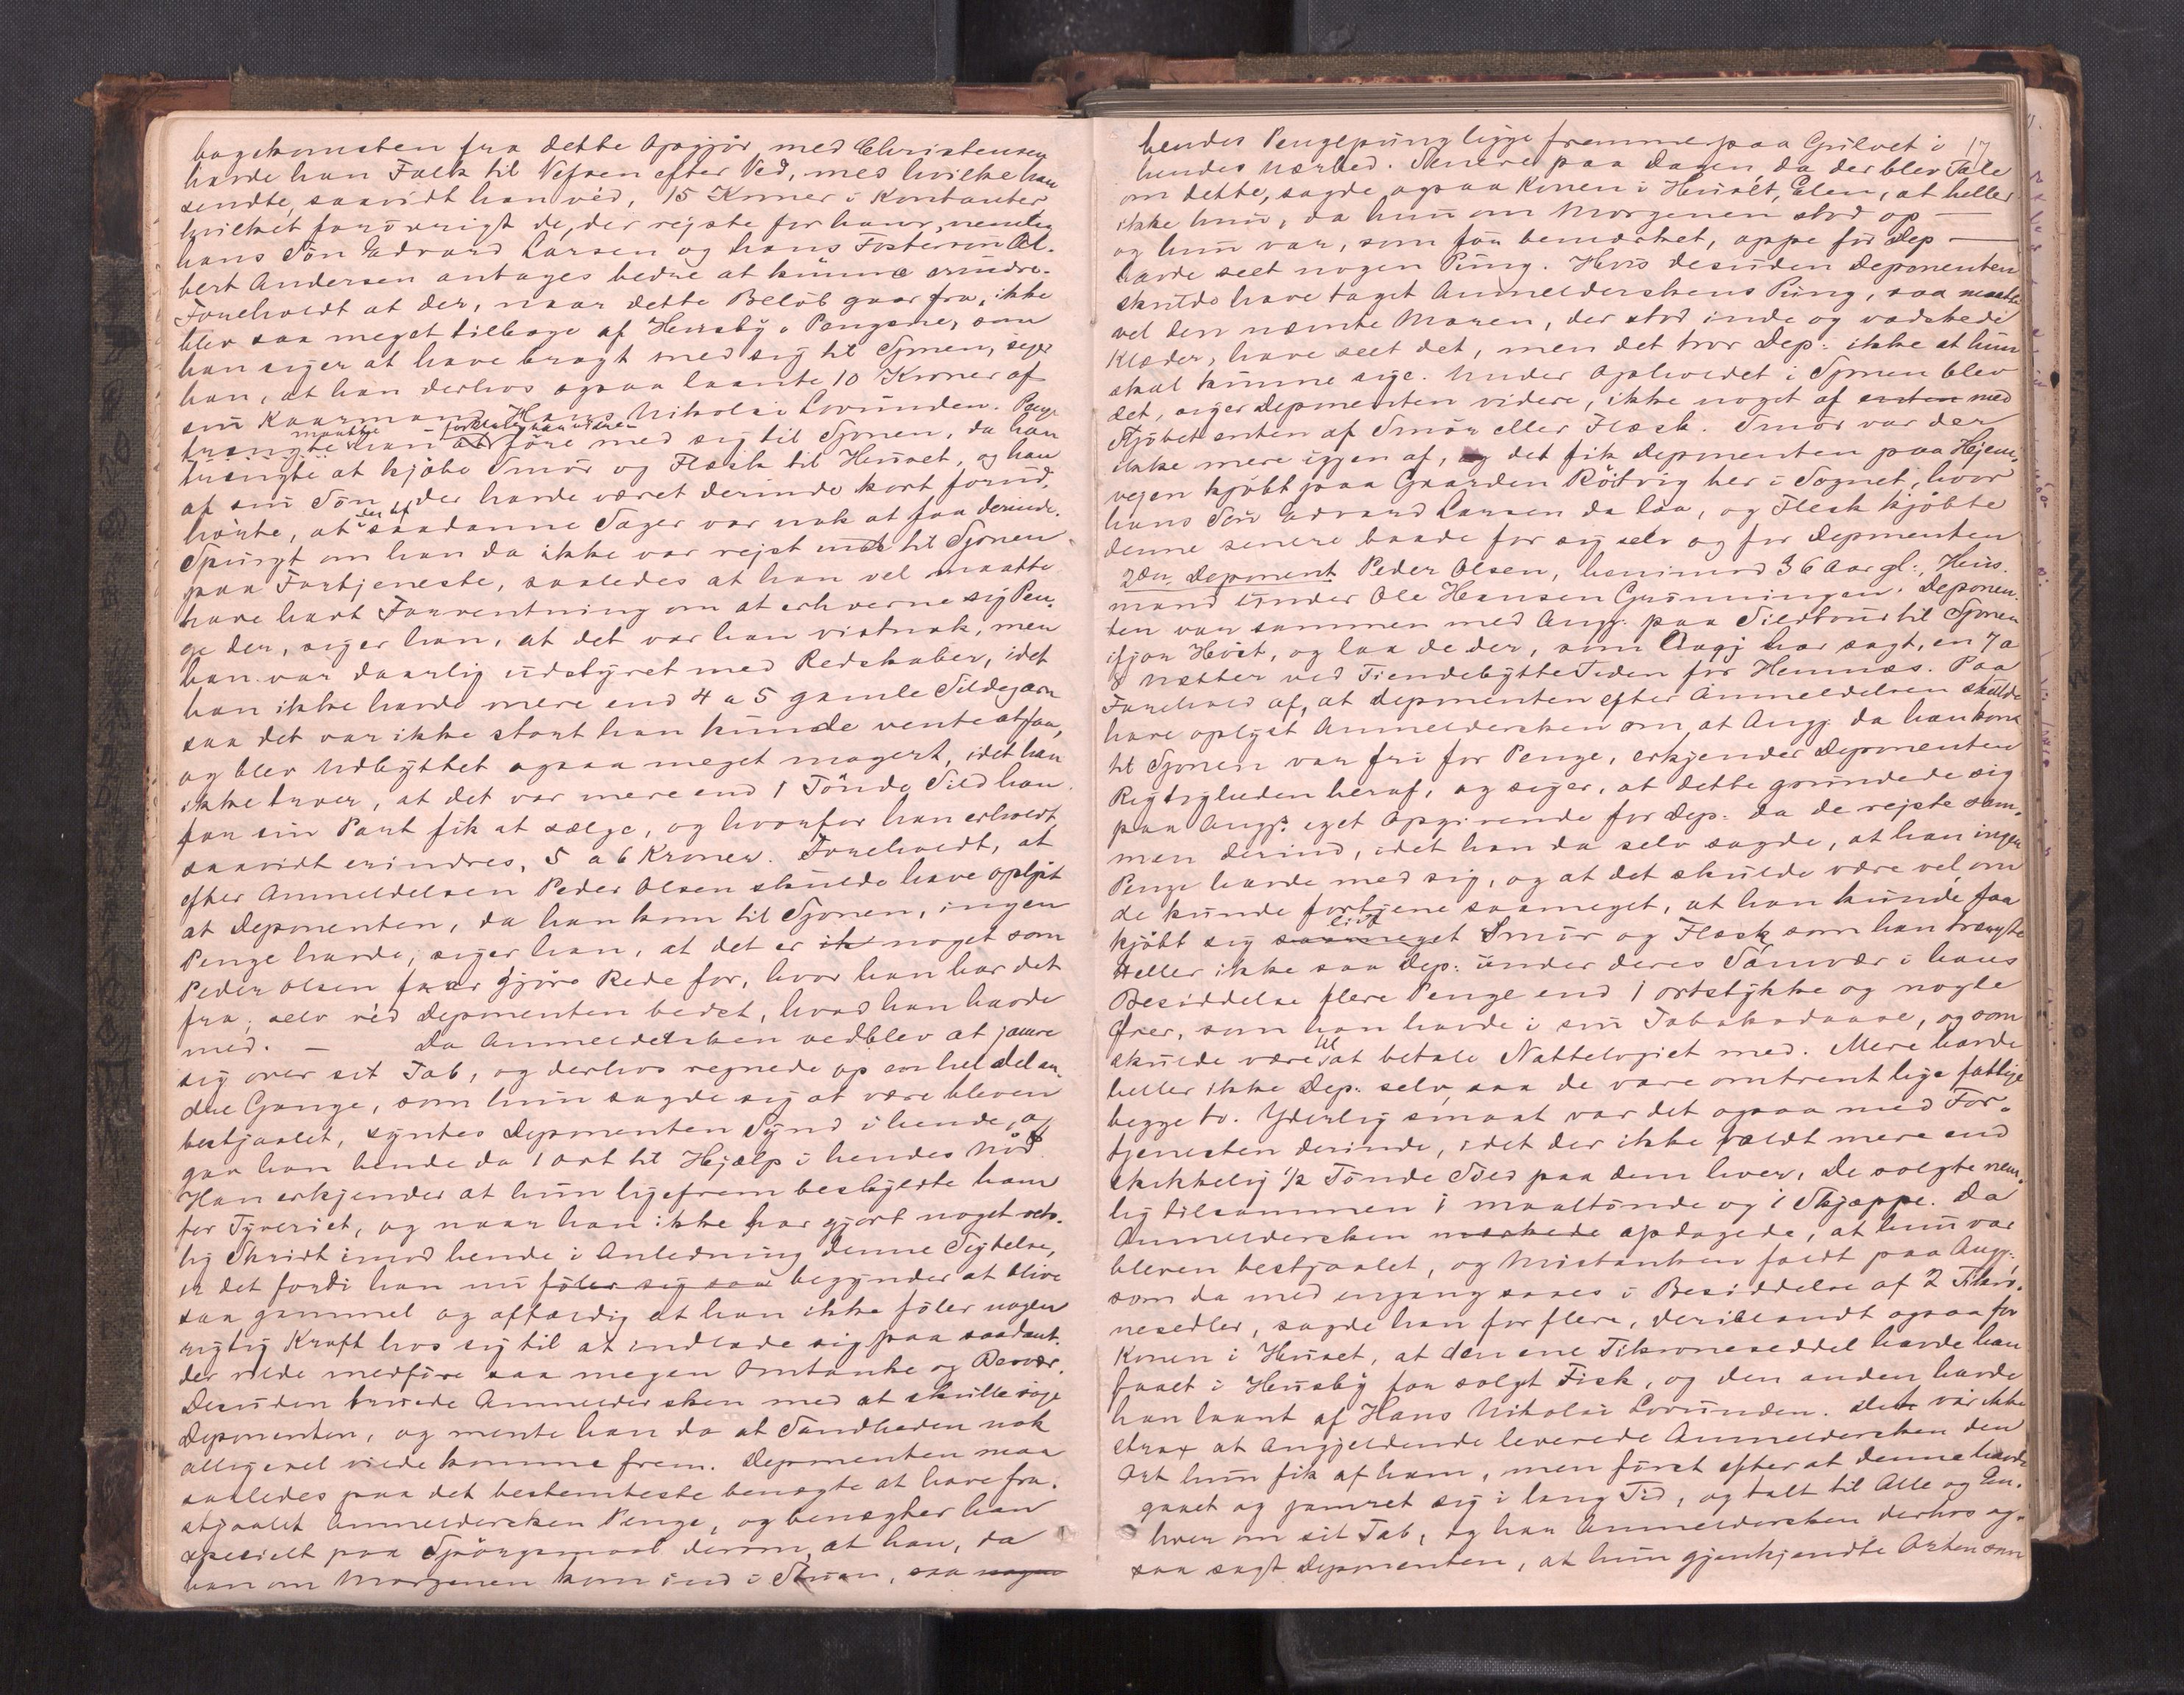 bagekomsten fra dette Opgjør med Christensen
havde han Folk til Vefsen efter Ved, med hvilke han
sendte, saavidt han véd, 15 Kroner i Kontanter,
hvilket forøvrigt de, der rejste for ham, nemlig
hans Søn Edvard Larsen og hans Fostersøn Al-
bert Andersen antages bedre at kunne erindre.
Foreholdt at der, naar dette Beløb gaar fra, ikke
blev saa meget tilbage af Husby-Pengene, som
han siger at have bragt med sig til Sjonen, siger
han, at han derhos ogsaa laante 10 Kroner af
sin Kaarmand Hans Nikolai Lovunden. Penge
maatte forklarer han videre
trængte han at føre med sig til Sjonen, da han
trængte at kjøbe Smør og Flæsk til Huset, og han
af sin Søn, der havde været derinde kort forud,
der af
hørte, at saadanne Sager var nok at faa derinde.
Spurgt om han da ikke var rejst ind til Sjonen
paa Fortjeneste, saaledes at han vel maatte
have havt Forventning om at erhverve sig Pen-
ge der, siger han, at det var han vistnok, men
han var daarlig udstyret med Redskaber, idet
han ikke havde mere end 4 a 5 gamle Sildegarn
saa det var ikke stort han kunde vente at faa,
og blev Udbyttet ogsaa meget magert, idet han
ikke troer, at det var mere end 1 Tønde Sild han
for sin Part fik at sælge, og hvorfor han erholdt,
saavidt erindres, 5 a 6 Kroner. Foreholdt, at
efter Anmeldelsen Peder Olsen skulde have oplyst
at Deponenten, da han kom til Sjonen, ingen
Penge havde, siger han, at det er ik noget som
Peder Olsen faar gjøre Rede for, hvor han har det
fra; selv véd Deponenten bedst, hvad han havde
med. — Da Anmeldersken vedblev at jamre
sig over sit Tab, og derhos regnede op en hel del an-
dre Gange, som hun sagde sig at være bleven
bestjaalet, syntes Deponenten Synd i hende, og
gav han hende da 1 Ort til Hjælp i hendes Nød.
Han erkjender at hun ligefrem beskyldte ham
for Tyveriet, og naar han ikke har gjort noget ret-
lig Skridt imod hende i Anledning denne Sigtelse,
er det fordi han nu føler sig saa begynder at blive
saa gammel og affældig at han ikke føler nogen
rigtig Kraft hos sig til at indlade sig paa saadant,
der vilde medføre saa megen Omtanke og Besvær.
Desuden truede Anmeldersken med at skulle søge
Deponenten, og mente han da at Sandheden nok
alligevel vilde komme frem. Deponenten maa
saaledes paa det bestemteste benægte at have fra-
stjaalet Anmeldersken Penge, og benægter han
specielt paa Spørgsmaal derom, at han, da
han om Morgenen kom ind i Stuen, saa nogen
17
hendes Pengepung ligge fremme paa Gulvet i
hendes Nærhed. Senere paa Dagen, da der blev Tale
om dette, sagde ogsaa Konen i Huset, Elen, at heller
ikke hun, da hun om Morgenen stod op —
og hun var, som før bemærket, oppe før Dep —
havde seet nogen Pung. Hvis desuden Deponenten
skulde have taget Anmelderskens Pung, saa maatte
vel den nævnte Maren, der stod inde og vadskede
Klæder, have seet det, men det tror Dep: ikke at hun
skal kunne sige. Under Opholdet i Sjonen blev
det, siger Deponenten videre, ikke noget af enten med
Kjøbet enten af Smør eller Flæsk. Smør var der
ikke mere igjen af, og det fik Deponenten paa Hjem-
vejen kjøbt paa Gaarden Rötvig her i Sognet, hvor
hans Søn Edvard Larsen da laa, og Flesk kjøbte
denne senere baade for sig selv og for Deponenten
2den Deponent Peder Olsen, henimod 36 Aar gl:, Hus-
mand under Ole Hansen Grønningen. Deponen-
ten var sammen med Angj: paa Sildbrug til Sjonen
ifjor Høst, og laa de der, som Angj har sagt, en 7 a
8 Nætter ved Tiendebyttetiden før Hemnæs. Paa
Forehold af, at Deponenten efter Anmeldelsen skulde
have oplyst Anmeldersken om at Angj. da han kom
til Sjonen var fri for Penge, erkjender Deponenten
Rigtigheden heraf, og siger, at dette grundede sig
paa Angjs eget Opgivende for Dep: da de rejste sam-
men derind, idet han da selv sagde, at han ingen
Penge havde med sig, og at det skulde være vel, om
de kunde fortjene saameget, at han kunde faa
lidt
kjøbt sig saameget Smør og Flæsk som han trængte
Heller ikke saa Dep: under deres Samvær i hans
Besiddelse flere Penge end 1 Ortstykke og nogle
Ører, som han havde i sin Tobaksdaase, og som
til
skulde være at betale Nattelogiet med. Mere havde
heller ikke Dep: selv, saa de vare omtrent lige fattige
begge to. Yderlig smaat var det ogsaa med For-
tjenesten derinde, idet der ikke faldt mere end
skikkelig ½ Tønde Sild paa dem hver, de solgte nem-
lig tilsammen 1 Maaltønde og 1 Skjæppe. Da
Anmeldersken mærkede opdagede, at hun var
bleven bestjaalet, og Mistanken faldt paa Angj:,
som da med engang saaes i Besiddelse af 2 Tikro-
nesedler, sagde han for flere, deriblandt ogsaa for
Konen i Huset, at den ene Tikroneseddel havde han
faaet i Husby for solgt Fisk, og den anden havde
han laant af Hans Nikolai Lovunden. Det var ikke
strax at Angjeldende leverede Anmeldersken den
Ort hun fik af ham, men først efter at denne havde
gaaet og jamret sig i lang Tid, og talt til Alle og En-
hver om sit Tab, og har Anmeldersken derhos og-
saa sagt Deponenten, at hun gjenkjendte Orten som